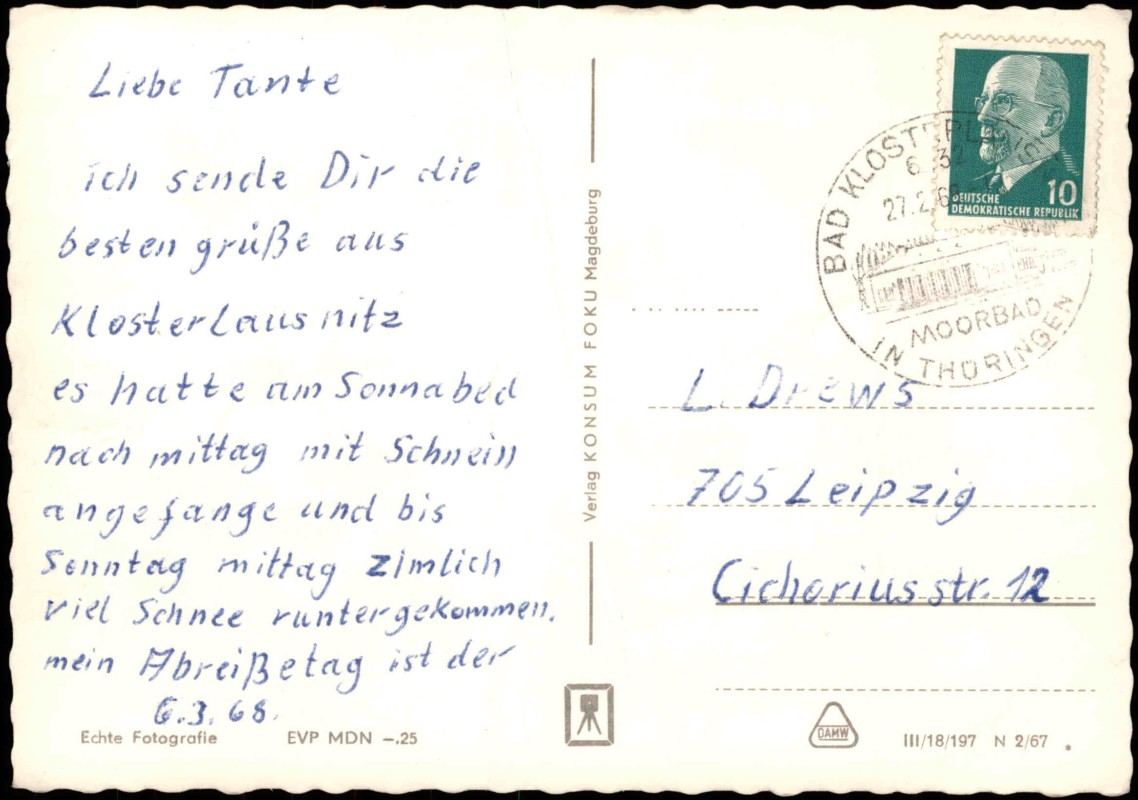 Liebe Tante
ich sende Dir die
besten grüße aus
Klosterlausnitz
es hatte am Sonnabed
nach mittag mit Schnein
angefange und bis
Sonntag mittag zimlich
viel Schnee runtergekommen.
mein Abreißetag ist der
6.3.68.
Echte Fotografie EVP MDN –.25
Verlag KONSUM FOKU Magdeburg
10
DEUTSCHE
DEMOKRATISCHE REPUBLIK
BAD KLOSTERLAUSNITZ
27.2.68
MOORBAD
IN THÜRINGEN
L. Drews
705 Leipzig
Cichoriusstr. 12
DAMW
III/18/197 N 2/67